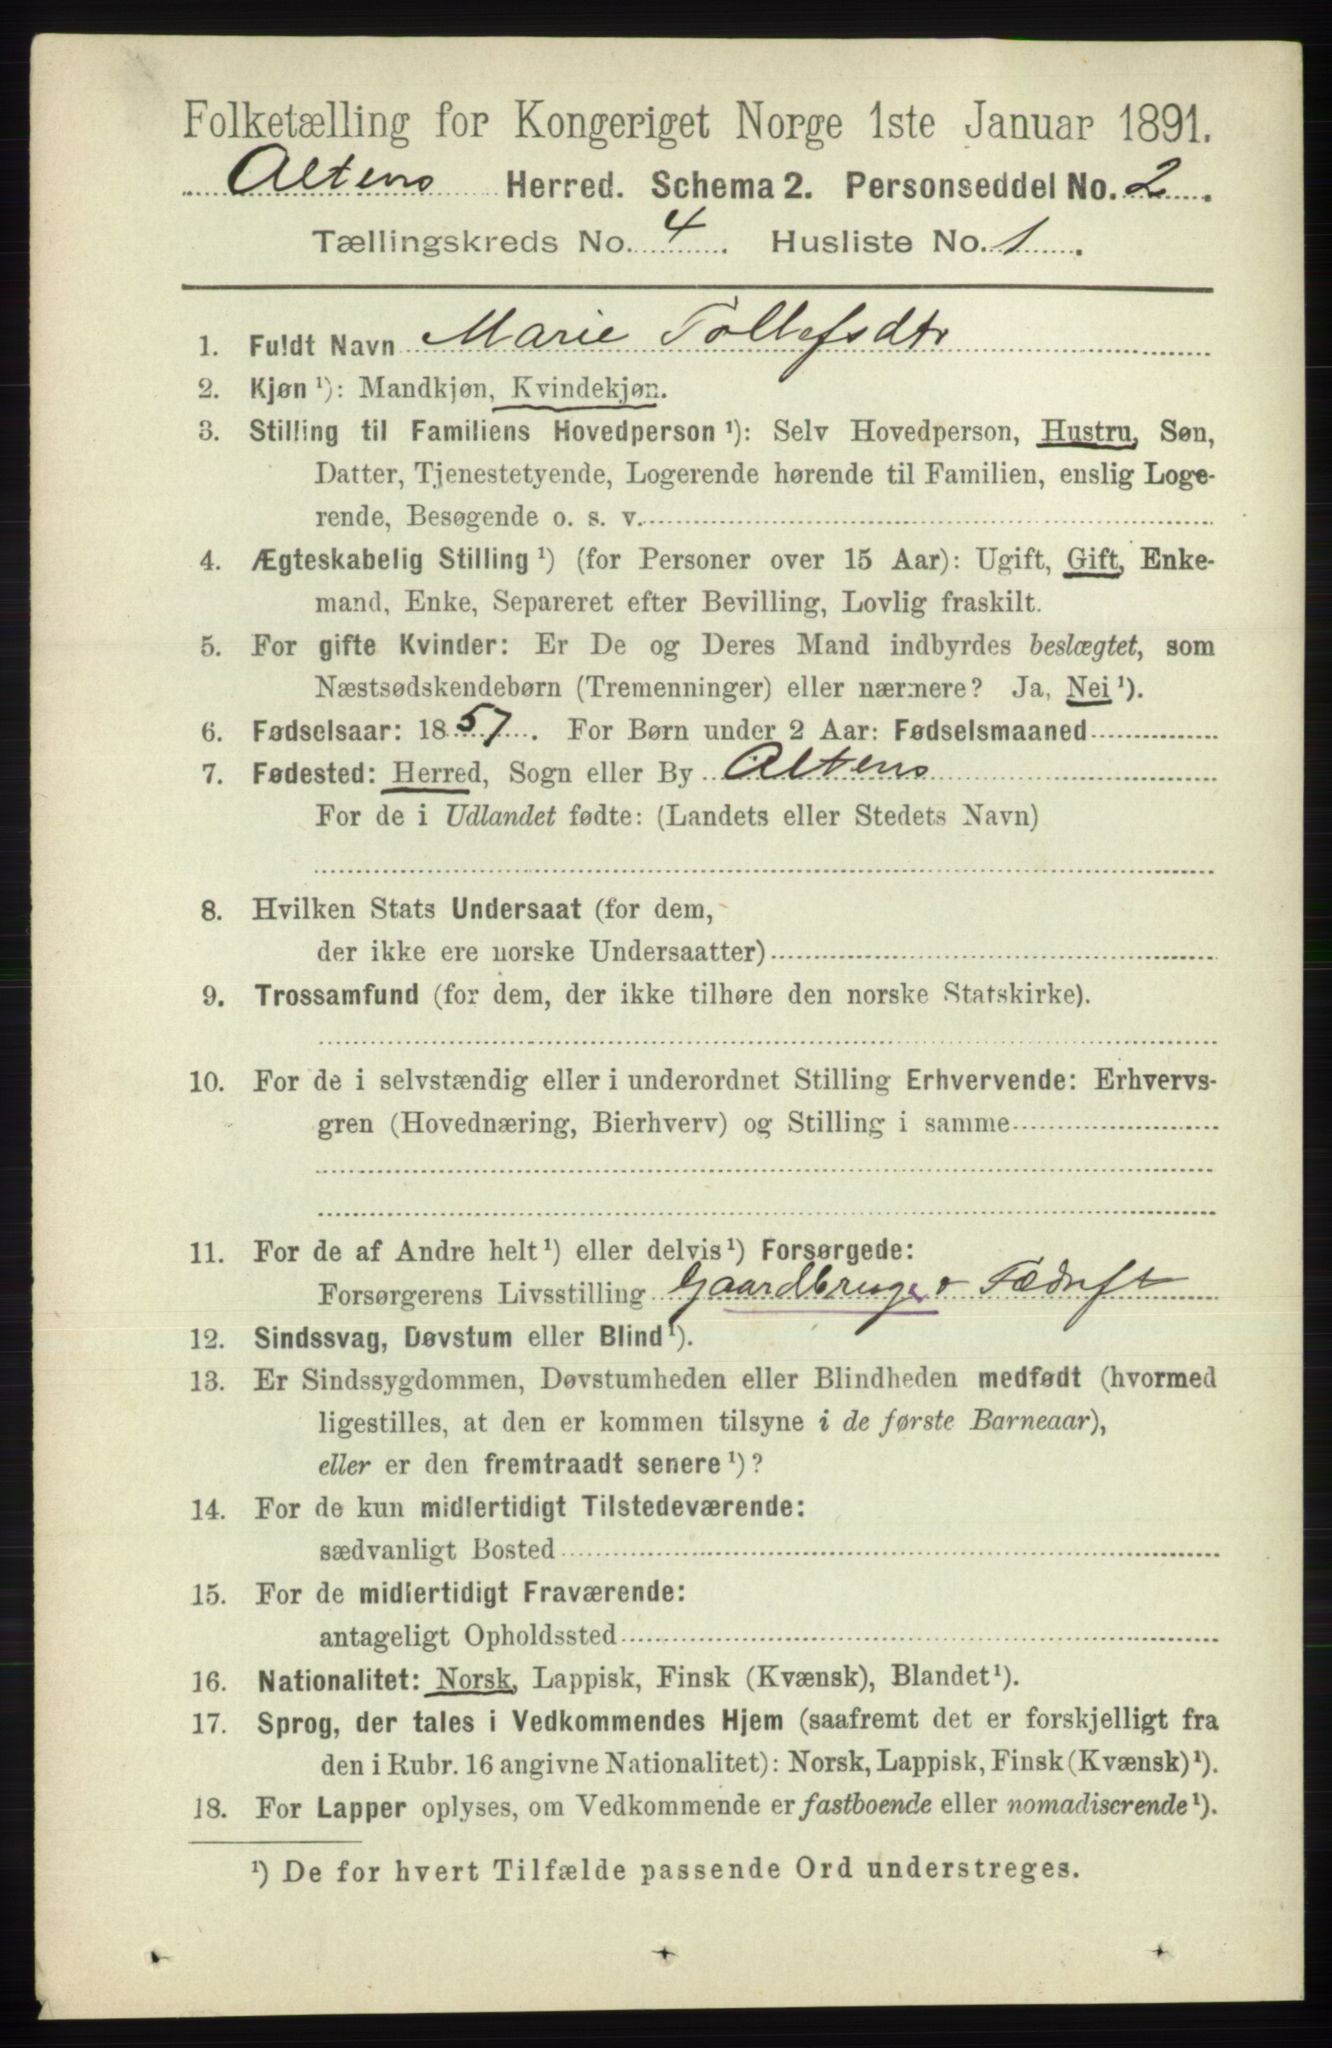 Folketælling for Kongeriget Norge 1ste Januar 1891.
Altens Herred. Schema 2. Personseddel No. 2.
Tællingskreds No. 4. Husliste No. 1.
1. Fuldt Navn Marie Tollefsdtr
2. Kjøn ¹): Mandkjøn, Kvindekjøn.
3. Stilling til Familiens Hovedperson ¹): Selv Hovedperson, Hustru, Søn,
Datter, Tjenestetyende, Logerende hørende til Familien, enslig Loge-
rende, Besøgende o. s. v.
4. Ægteskabelig Stilling ¹) (for Personer over 15 Aar): Ugift, Gift, Enke-
mand, Enke, Separeret efter Bevilling, Lovlig fraskilt.
5. For gifte Kvinder: Er De og Deres Mand indbyrdes beslægtet, som
Næstsødskendebørn (Tremenninger) eller nærmere? Ja, Nei ¹).
6. Fødselsaar: 1857. For Børn under 2 Aar: Fødselsmaaned
7. Fødested: Herred, Sogn eller By Altens
For de i Udlandet fødte: (Landets eller Stedets Navn)
8. Hvilken Stats Undersaat (for dem,
der ikke ere norske Undersaatter)
9. Trossamfund (for dem, der ikke tilhøre den norske Statskirke).
10. For de i selvstændig eller i underordnet Stilling Erhvervende: Erhvervs-
gren (Hovednæring, Bierhverv) og Stilling i samme
11. For de af Andre helt ¹) eller delvis ¹) Forsørgede:
Forsørgerens Livsstilling Gaardbruger Fædrift
12. Sindssvag, Døvstum eller Blind ¹).
13. Er Sindssygdommen, Døvstumheden eller Blindheden medfødt (hvormed
ligestilles, at den er kommen tilsyne i de første Barneaar),
eller er den fremtraadt senere ¹)?
14. For de kun midlertidigt Tilstedeværende:
sædvanligt Bosted
15. For de midlertidigt Fraværende:
antageligt Opholdssted
16. Nationalitet: Norsk, Lappisk, Finsk (Kvænsk), Blandet ¹).
17. Sprog, der tales i Vedkommendes Hjem (saafremt det er forskjelligt fra
den i Rubr. 16 angivne Nationalitet): Norsk, Lappisk, Finsk (Kvænsk) ¹).
18. For Lapper oplyses, om Vedkommende er fastboende eller nomadiserende ¹).
¹) De for hvert Tilfælde passende Ord understreges.